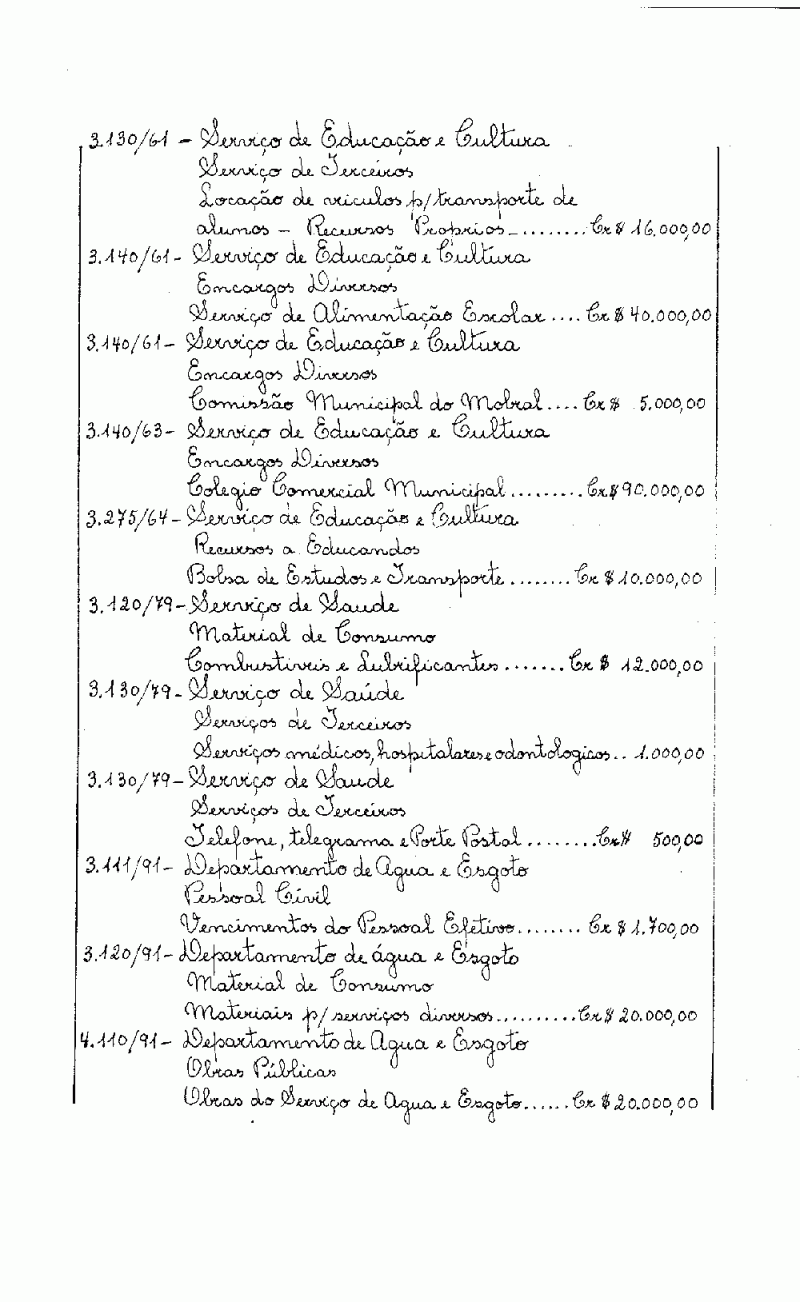 3.130/61 - Serviço de Educação e Cultura
Serviço de Terceiros
Locação de veiculos p/transporte de
alunos - Recursos Proprios-........Cr$ 16.000,00
3.140/61- Serviço de Educação e Cultura
Encargos Diversos
Serviço de Alimentação Escolar .... Cr$ 40.000,00
3.140/61- Serviço de Educação e Cultura
Encargos Diversos
Comissão Municipal do Mobral.... Cr$ 5.000,00
3.140/63- Serviço de Educação e Cultura
Encargos Diversos
Colegio Comercial Municipal.........Cr$90.000,00
3.275/64-Serviço de Educação e Cultura
Recursos a Educandos
Bolsa de Estudos e Transporte ........ Cr$ 10.000,00
3.120/79-Serviço de Saude
Material de Consumo
Combustiveis e Lubrificantes ....... Cr $ 12.000,00
3.130/79- Serviço de Saúde
Serviços de Terceiros
Serviços médicos, hospitalares e odontologicos.. 1.000,00
3.130/79-Serviço de Saude
Serviços de Terceiros
Telefone, telegrama e Porte Postal ........Cr$ 500,00
3.111/91- Departamento de Agua e Esgoto
Pessoal Cívil
Vencimentos do Pessoal Efetivo........ Cr $ 1.700,00
3.120/91-Departamento de água e Esgoto
Material de Consumo
Materiais p/ serviços diversos..........Cr$ 20.000,00
4.110/91- Departamento de Agua e Esgoto
Obras Públicas
Obras do Serviço de Agua e Esgoto...... Cr $20.000,00